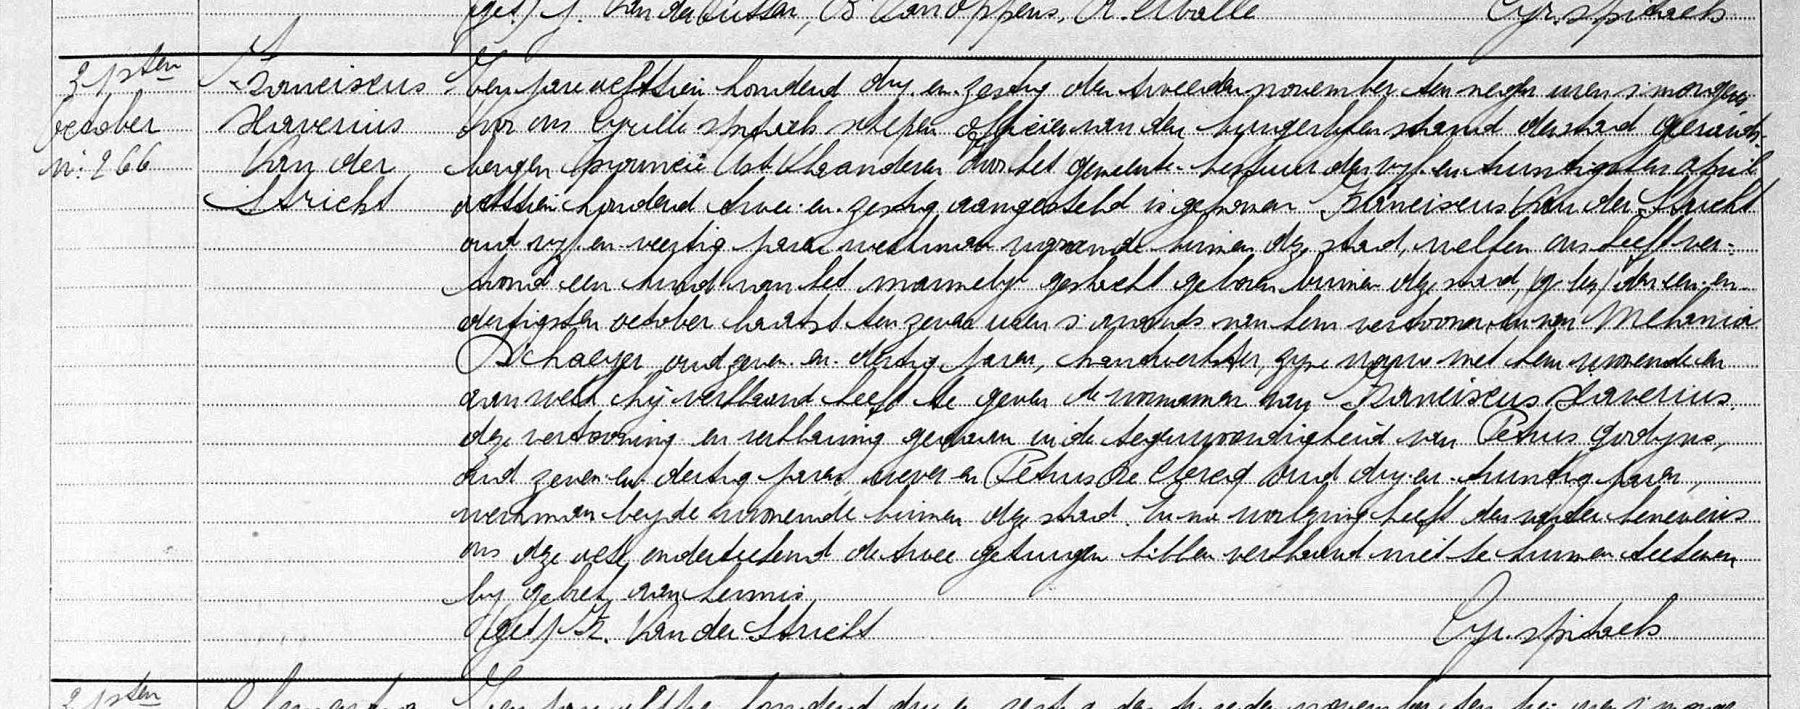 (get) J. Van der Cutsen, B. Van Oppens, A. Walle Cyr. Spitaels
31sten
October
N: 266
Franciscus
Xaverius
Van der
Stricht
Ten jare achttien honderd dry en zestig den tweeden november ten negen uren s'morgens
voor ons Cyrille Spitaels schepen officier van den burgerlyken stand der stad Geraards-
bergen provincie Oost Vlaanderen door het gemeente-bestuur den vyf en twintigsten april
achttien honderd twee-en-zestig aangesteld is gekomen Franciscus Van der Stricht
oud vyf-en-veertig jaren werkman wonende binnen deze stad, welken ons heeft ver-
toond een kind van het mannelyk geslacht geboren binnen deze stad, den een-en-
dertigsten october laatst ten zeven uren s'avonds van hem vertooner en van Melania
Schaeyer oud zeven-en-dertig jaren, handwerkster, zyne vrouw met hem wonende en
aan welk hij verklaard heeft te geven de voornamen van Franciscus Xaverius.
deze vertooning en verklaring gedaan in de tegenwoordigheid van Petrus Godyns,
oud zeven-en-dertig jaren, wever en Petrus De Clercq oud dry-en-twintig jaren,
werkman beyde wonende binnen deze stad. En na voorlezing heeft den vader benevens
ons deze acte onderteekend de twee getuigen hebben verklaard niet te kunnen teekenen
by gebrek aan kennis
(get) F. Van der Stricht Cyr. Spitaels
31sten
Ten jare achttien honderd dry en zestig den tweeden november ten uren s'morgens